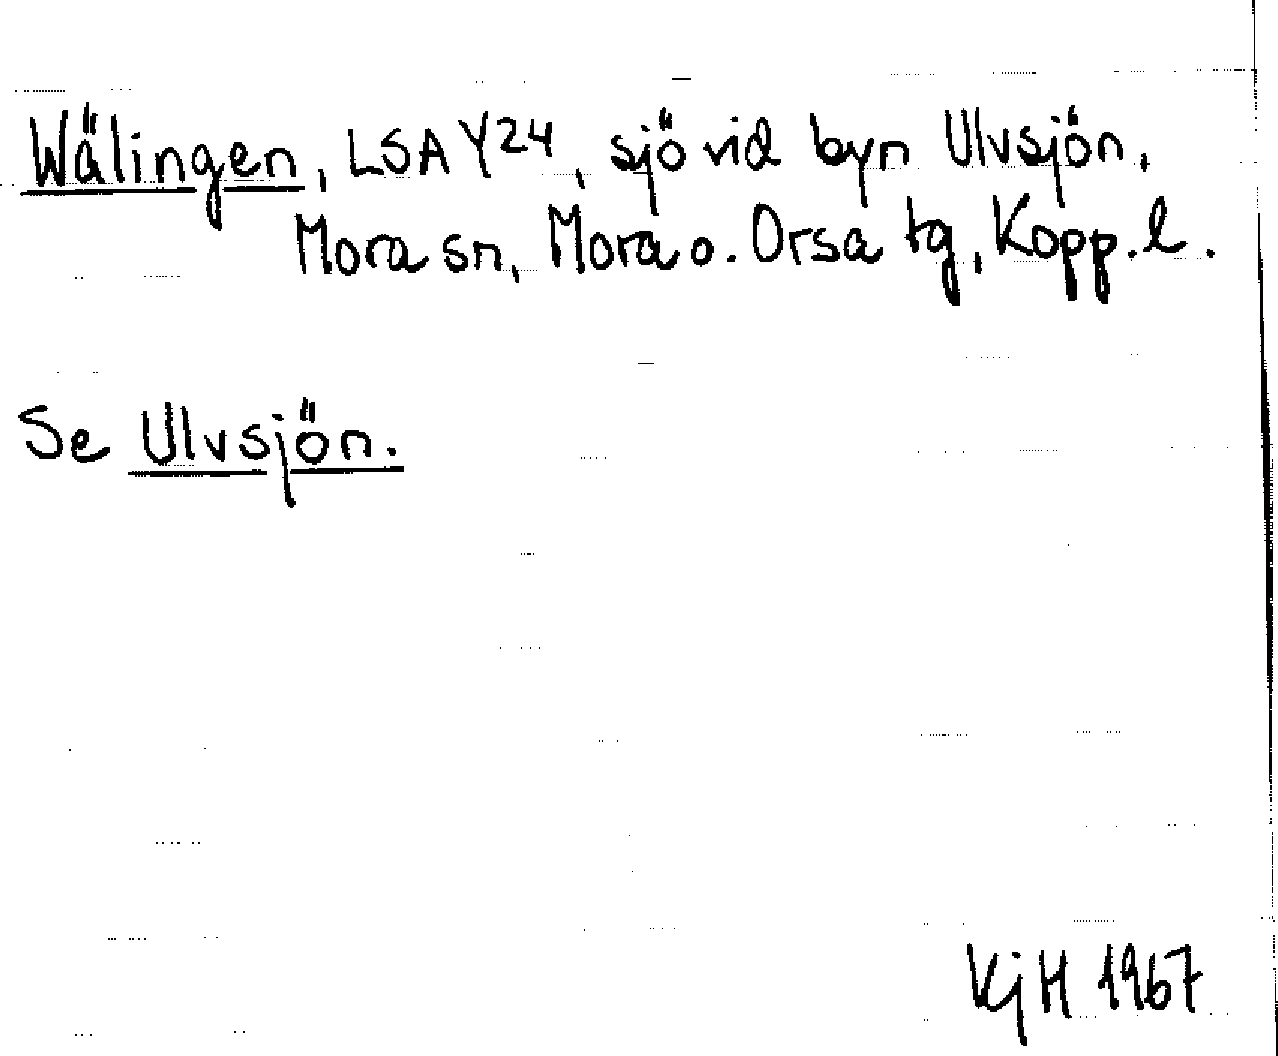 Wälingen, LSA Y24, sjö vid byn Ulvsjön,
Mora sn, Mora o. Orsa tg, Kopp. l.
Se Ulvsjön.
KjH 1967